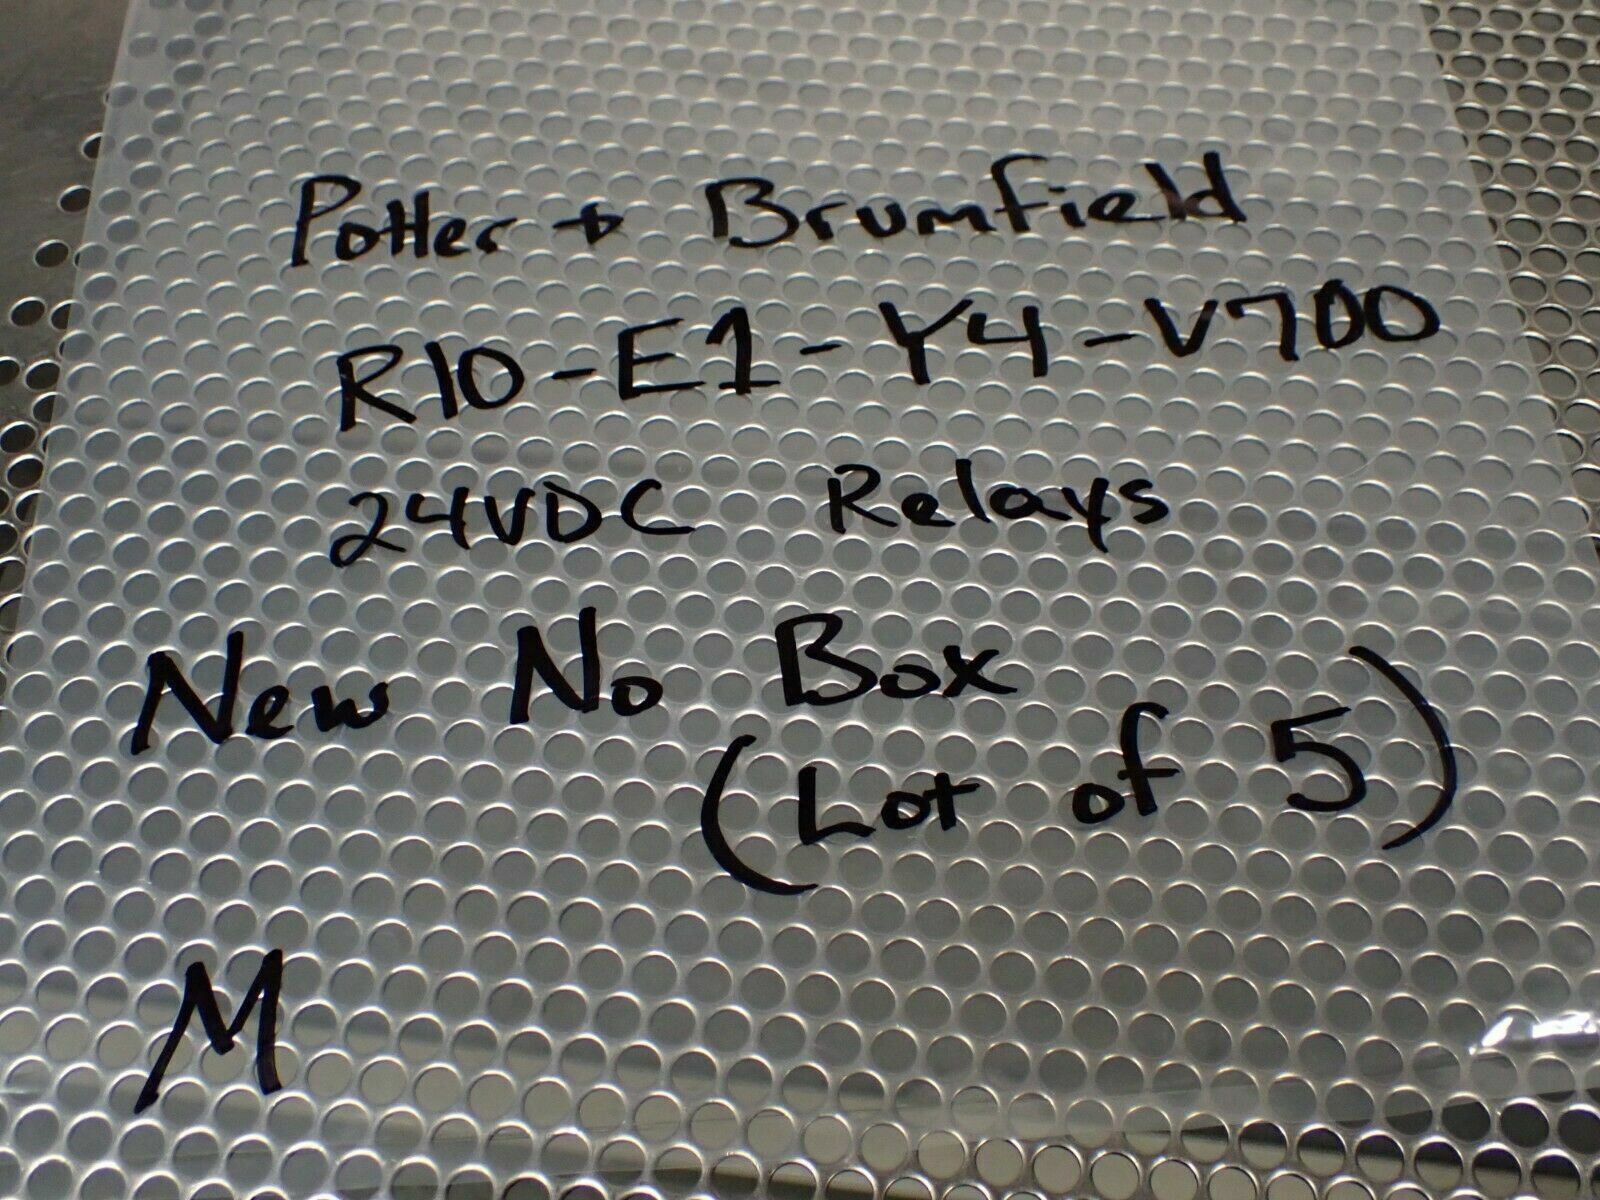 Potter + Brumfield
R10-E1-Y4-V700
24VDC Relays
New No Box
(Lot of 5)
M